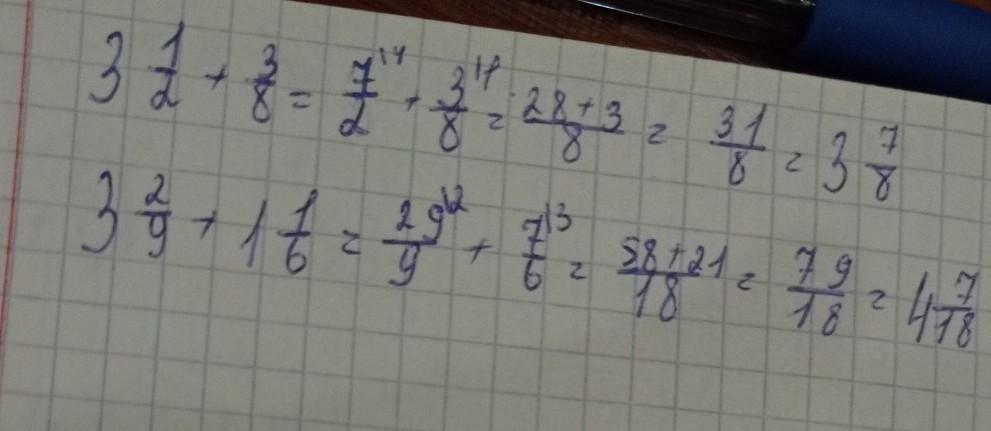 3 1/2 + 3/8 = 7\4/2 + 3\1/8 = 28+3/8 = 31/8 = 3 7/8
3 2/9 + 1 1/6 = 29\2/9 + 7\3/6 = 58+21/18 = 79/18 = 4 7/18